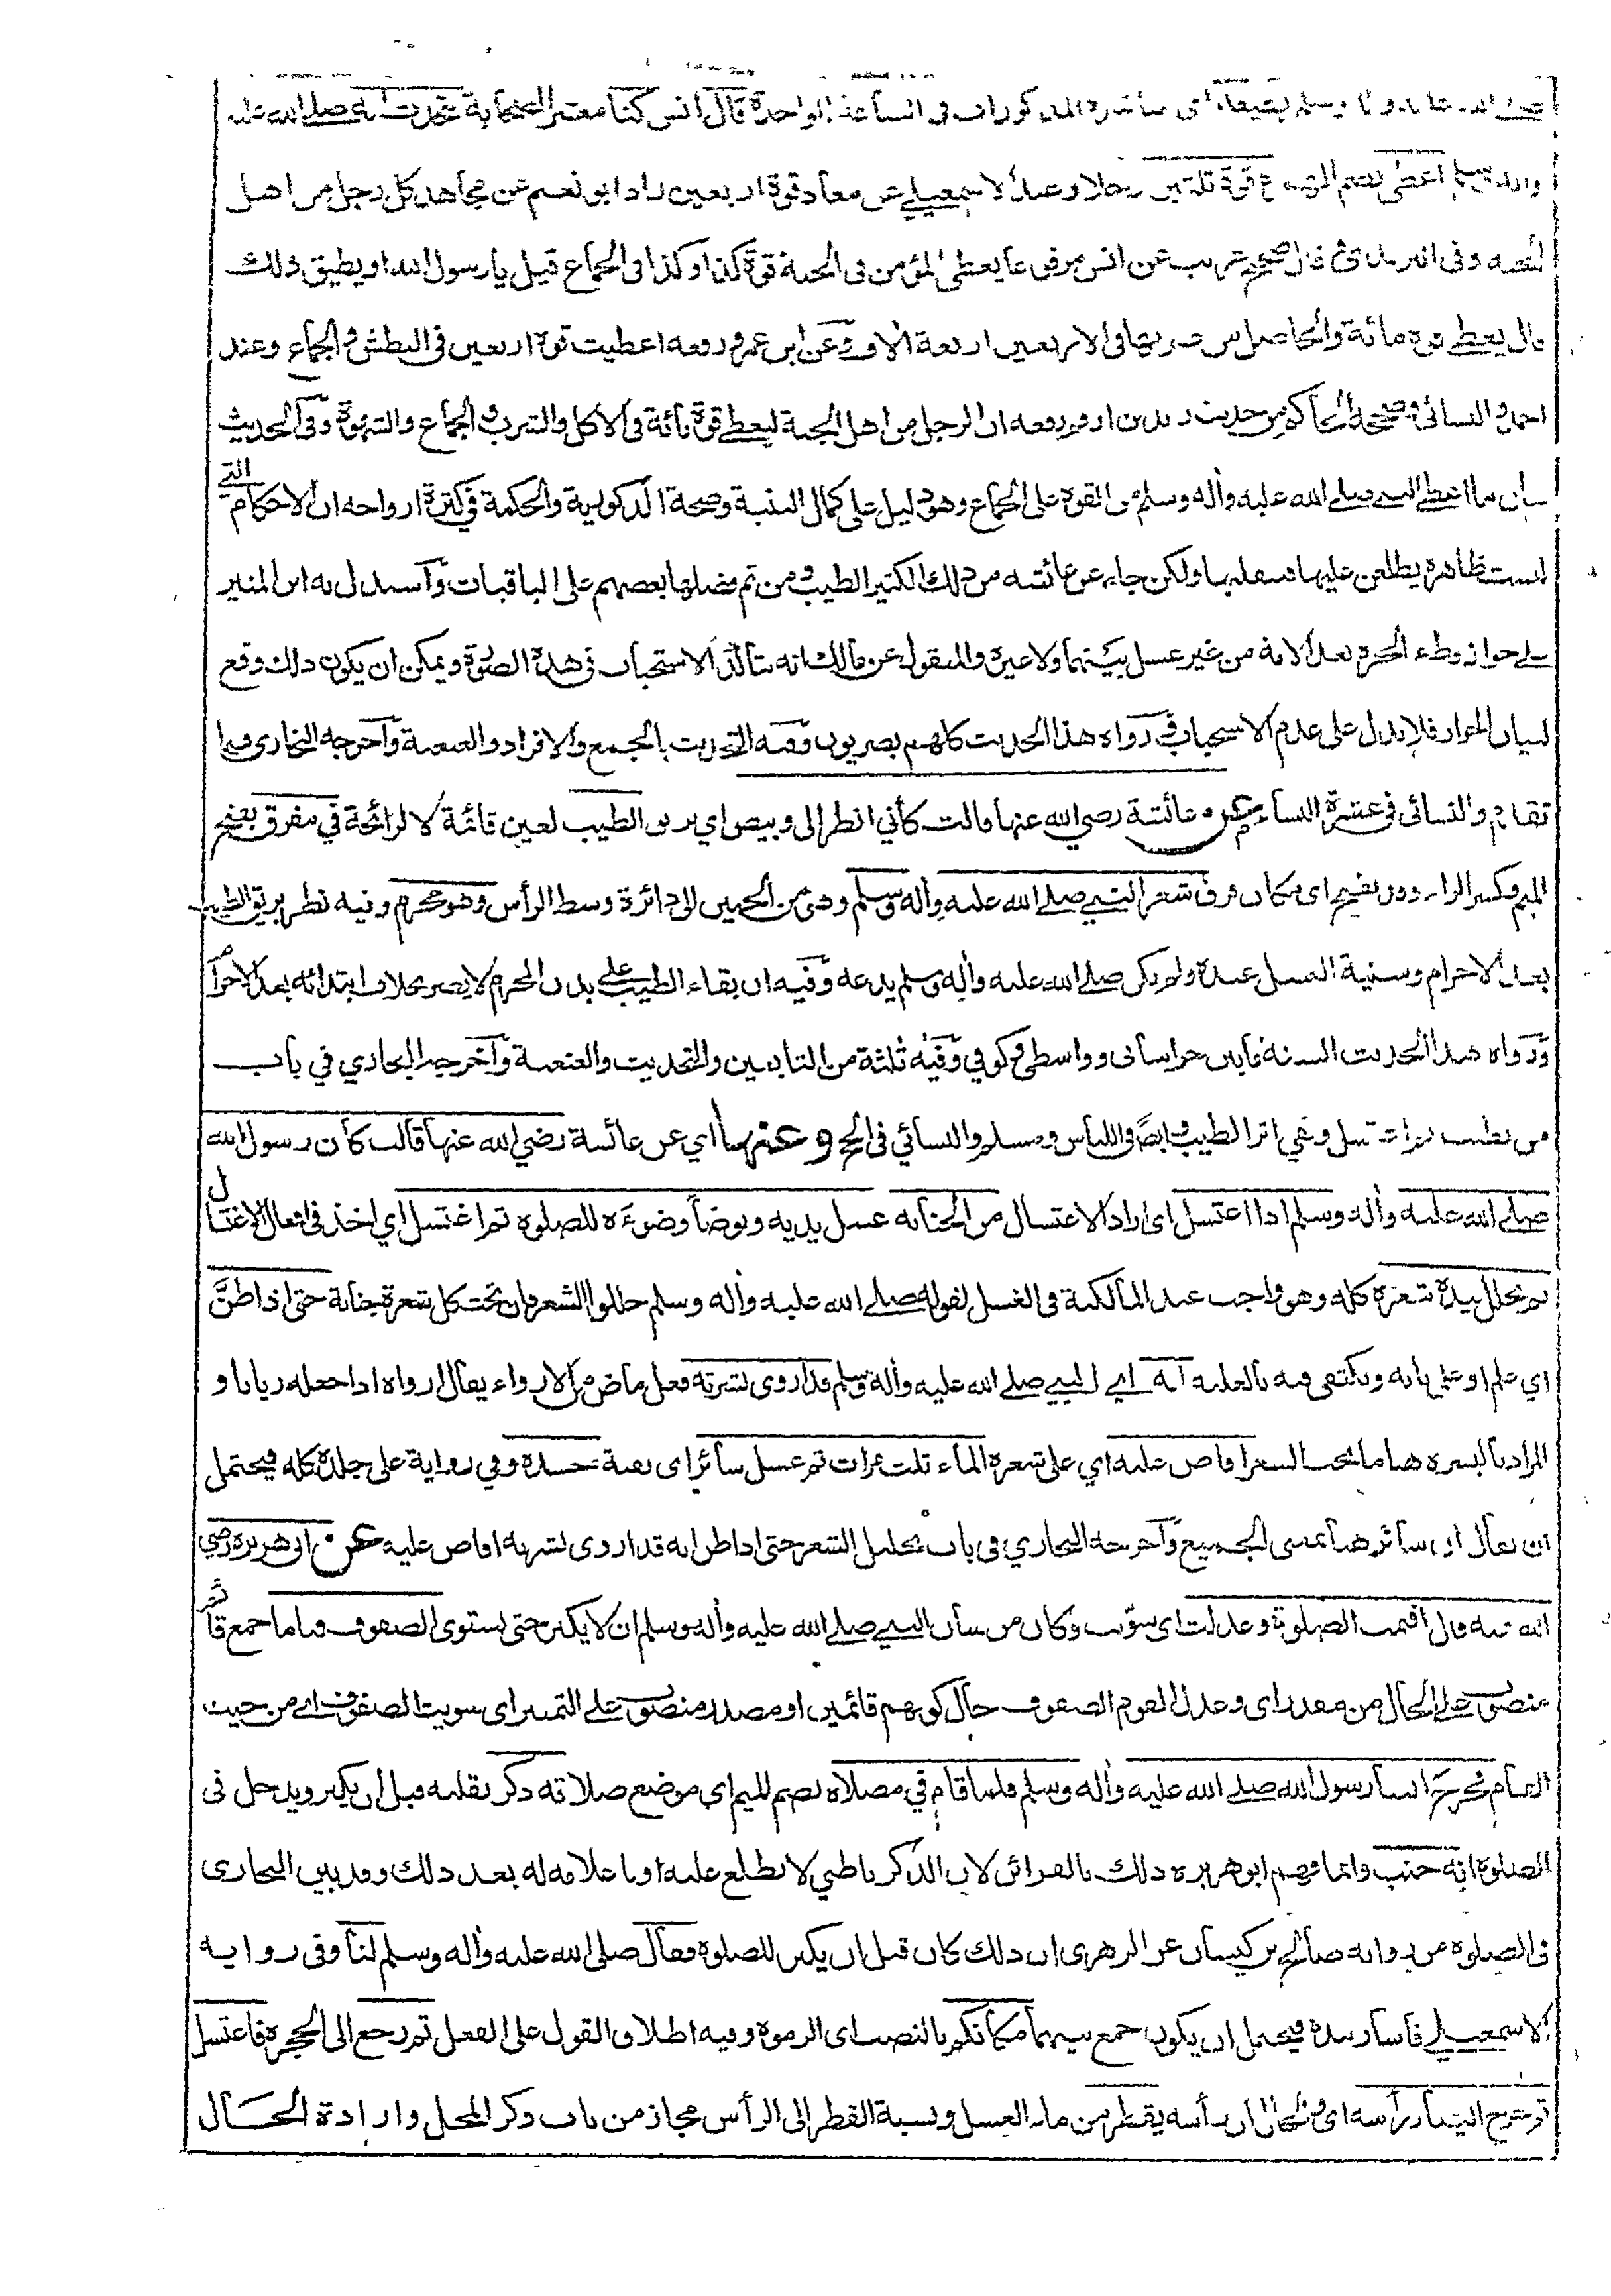 صلى الله عليه وآله وسلم يطيقه أي مباشرة المذكورات في الساعة الواحدة قال أنس كنا معشر الصحابة نتحدث أنه صلى الله عليه
وآله وسلم اعطى بضم الهمزة قوة ثلثين رجلا وعند الاسمعيلي عن معاذ قوة اربعين زاد ابو نعيم عن مجاهد كل رجل من اهل
الجنة وفي الترمذي وقال صحيح غريب عن انس مرفوعا يعطى المؤمن في الجنة قوة كذا وكذا في الجماع قيل يا رسول الله او يطيق ذلك
قال يعطى قوة مائة والحاصل من ضربها في الاربعين اربعة آلاف وعن ابن عمر ورفعه اعطيت قوة اربعين في البطش والجماع وعند
احمد والنسائي وصححه الحاكم من حديث زيد بن ارقم رفعه ان الرجل من اهل الجنة ليعطى قوة مائة في الاكل والشرب والجماع والشهوة وفي الحديث
بيان ما اعطى النبي صلى الله عليه وآله وسلم من القوة على الجماع وهو دليل على كمال البنية وصحة الذكورية والحكمة في كثرة ازواجه ان الاحكام التي
ليست ظاهرة يطلعن عليها فينقلنها ولكن جاء عن عائشة من ذلك الكثير الطيب ومن ثم فضلها بعضهم على الباقيات واستدل به ابن المنير
على جواز وطء الحرة بعد الامة من غير غسل بينهما ولا غيره والمنقول عن مالك انه يتأكد الاستحباب في هذه الصورة ويمكن ان يكون ذلك وقع
لبيان الجواز فلا يدل على عدم الاستحباب ورواة هذا الحديث كلهم بصريون وفيه التحديث بالجمع والافراد والعنعنة وأخرجه البخاري فيما
تقدم والنسائي في عشرة النساء عن عائشة رضي الله عنها قالت كأني انظر الى وبيص اي بريق الطيب لعين قائمة لا لرائحة في مفرق بفتح
الميم وكسر الراء وقد تفتح اي مكان فرق شعر النبي صلى الله عليه وآله وسلم وهو من الجبين الى دائرة وسط الرأس وهو محرم وفيه نظر بريق الطيب
بعد الاحرام وسنية الغسل عنده ولم يكن صلى الله عليه وآله وسلم يدعه وفيه ان بقاء الطيب على بدن المحرم لا يضر بخلاف ابتدائه بعد الاحرام
ورواة هذا الحديث الستة ما بين خراساني وواسطي وكوفي وفيه ثلثة من التابعين والتحديث والعنعنة وأخرجه البخاري في باب
من تطيب ثم اغتسل وبقي اثر الطيب وايضا في اللباس ومسلم والنسائي في الحج وعنها أي عن عائشة رضي الله عنها قالت كان رسول الله
صلى الله عليه وآله وسلم اذا اغتسل اي اراد الاغتسال من الجنابة غسل يديه وتوضأ وضوءه للصلوة ثم اغتسل اي اخذ في افعال الاغتسال
ثم يخلل بيده شعره كله وهو واجب عند المالكية في الغسل لقوله صلى الله عليه وآله وسلم خللوا الشعر فان تحت كل شعرة جنابة حتى اذا ظن
اي علم او على بابه ويكتفى فيه بالغلبة انه اي النبي صلى الله عليه وآله وسلم قد اروى بشرته فعل ماض من الارواء يقال ارواه اذا جعله ريانا و
المراد بالبشرة هنا ما تحت الشعر افاض عليه اي على شعره الماء ثلث مرات ثم غسل سائر اي بقية جسده وفي رواية على جلده كله فيحتمل
ان يقال ان سائر هنا بمعنى الجميع وأخرجه البخاري في باب تخليل الشعر حتى اذا ظن انه قد اروى بشرته افاض عليه عن ابي هريرة رضي
الله عنه قال اقيمت الصلوة وعدلت اي سويت وكان من شأن النبي صلى الله عليه وآله وسلم ان لا يكبر حتى تستوي الصفوف قياما جمع قائم
منصوب على الحال من مقدر اي وعدل القوم الصفوف حال كونهم قائمين او مصدر منصوب على التمييز اي سويت الصفوف اي من حيث
القيام فخرج الينا رسول الله صلى الله عليه وآله وسلم فلما قام في مصلاه بضم الميم اي موضع صلاته ذكر بقلبه قبل ان يكبر ويدخل في
الصلوة انه جنب وانما فهم ابو هريرة ذلك بالقرائن لان الذكر باطني لا يطلع عليه او باعلامه له بعد ذلك وقد بين البخاري
في الصلوة من رواية صالح بن كيسان عن الزهري ان ذلك كان قبل ان يكبر للصلوة فقال صلى الله عليه وآله وسلم لنا وفي رواية
الاسمعيلي فأشار بيده فيحتمل ان يكون جمع بينهما مكانكم بالنصب اي الزموه وفيه اطلاق القول على الفعل ثم رجع الى الحجرة فاغتسل
ثم خرج الينا ورأسه اي والحال ان رأسه يقطر من ماء الغسل ونسبة القطر الى الرأس مجاز من باب ذكر المحل وارادة الحال